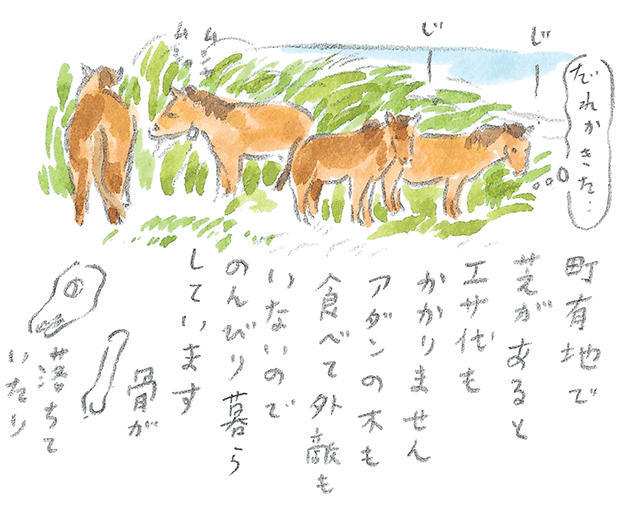 だれかきた…
じ
じ
ムシ
ムシ
町有地で
芝があると
エサ代も
かかりません
アダンの木も
食べて外敵も
いないので
のんびり暮ら
しています
骨が
落ちて
いたり